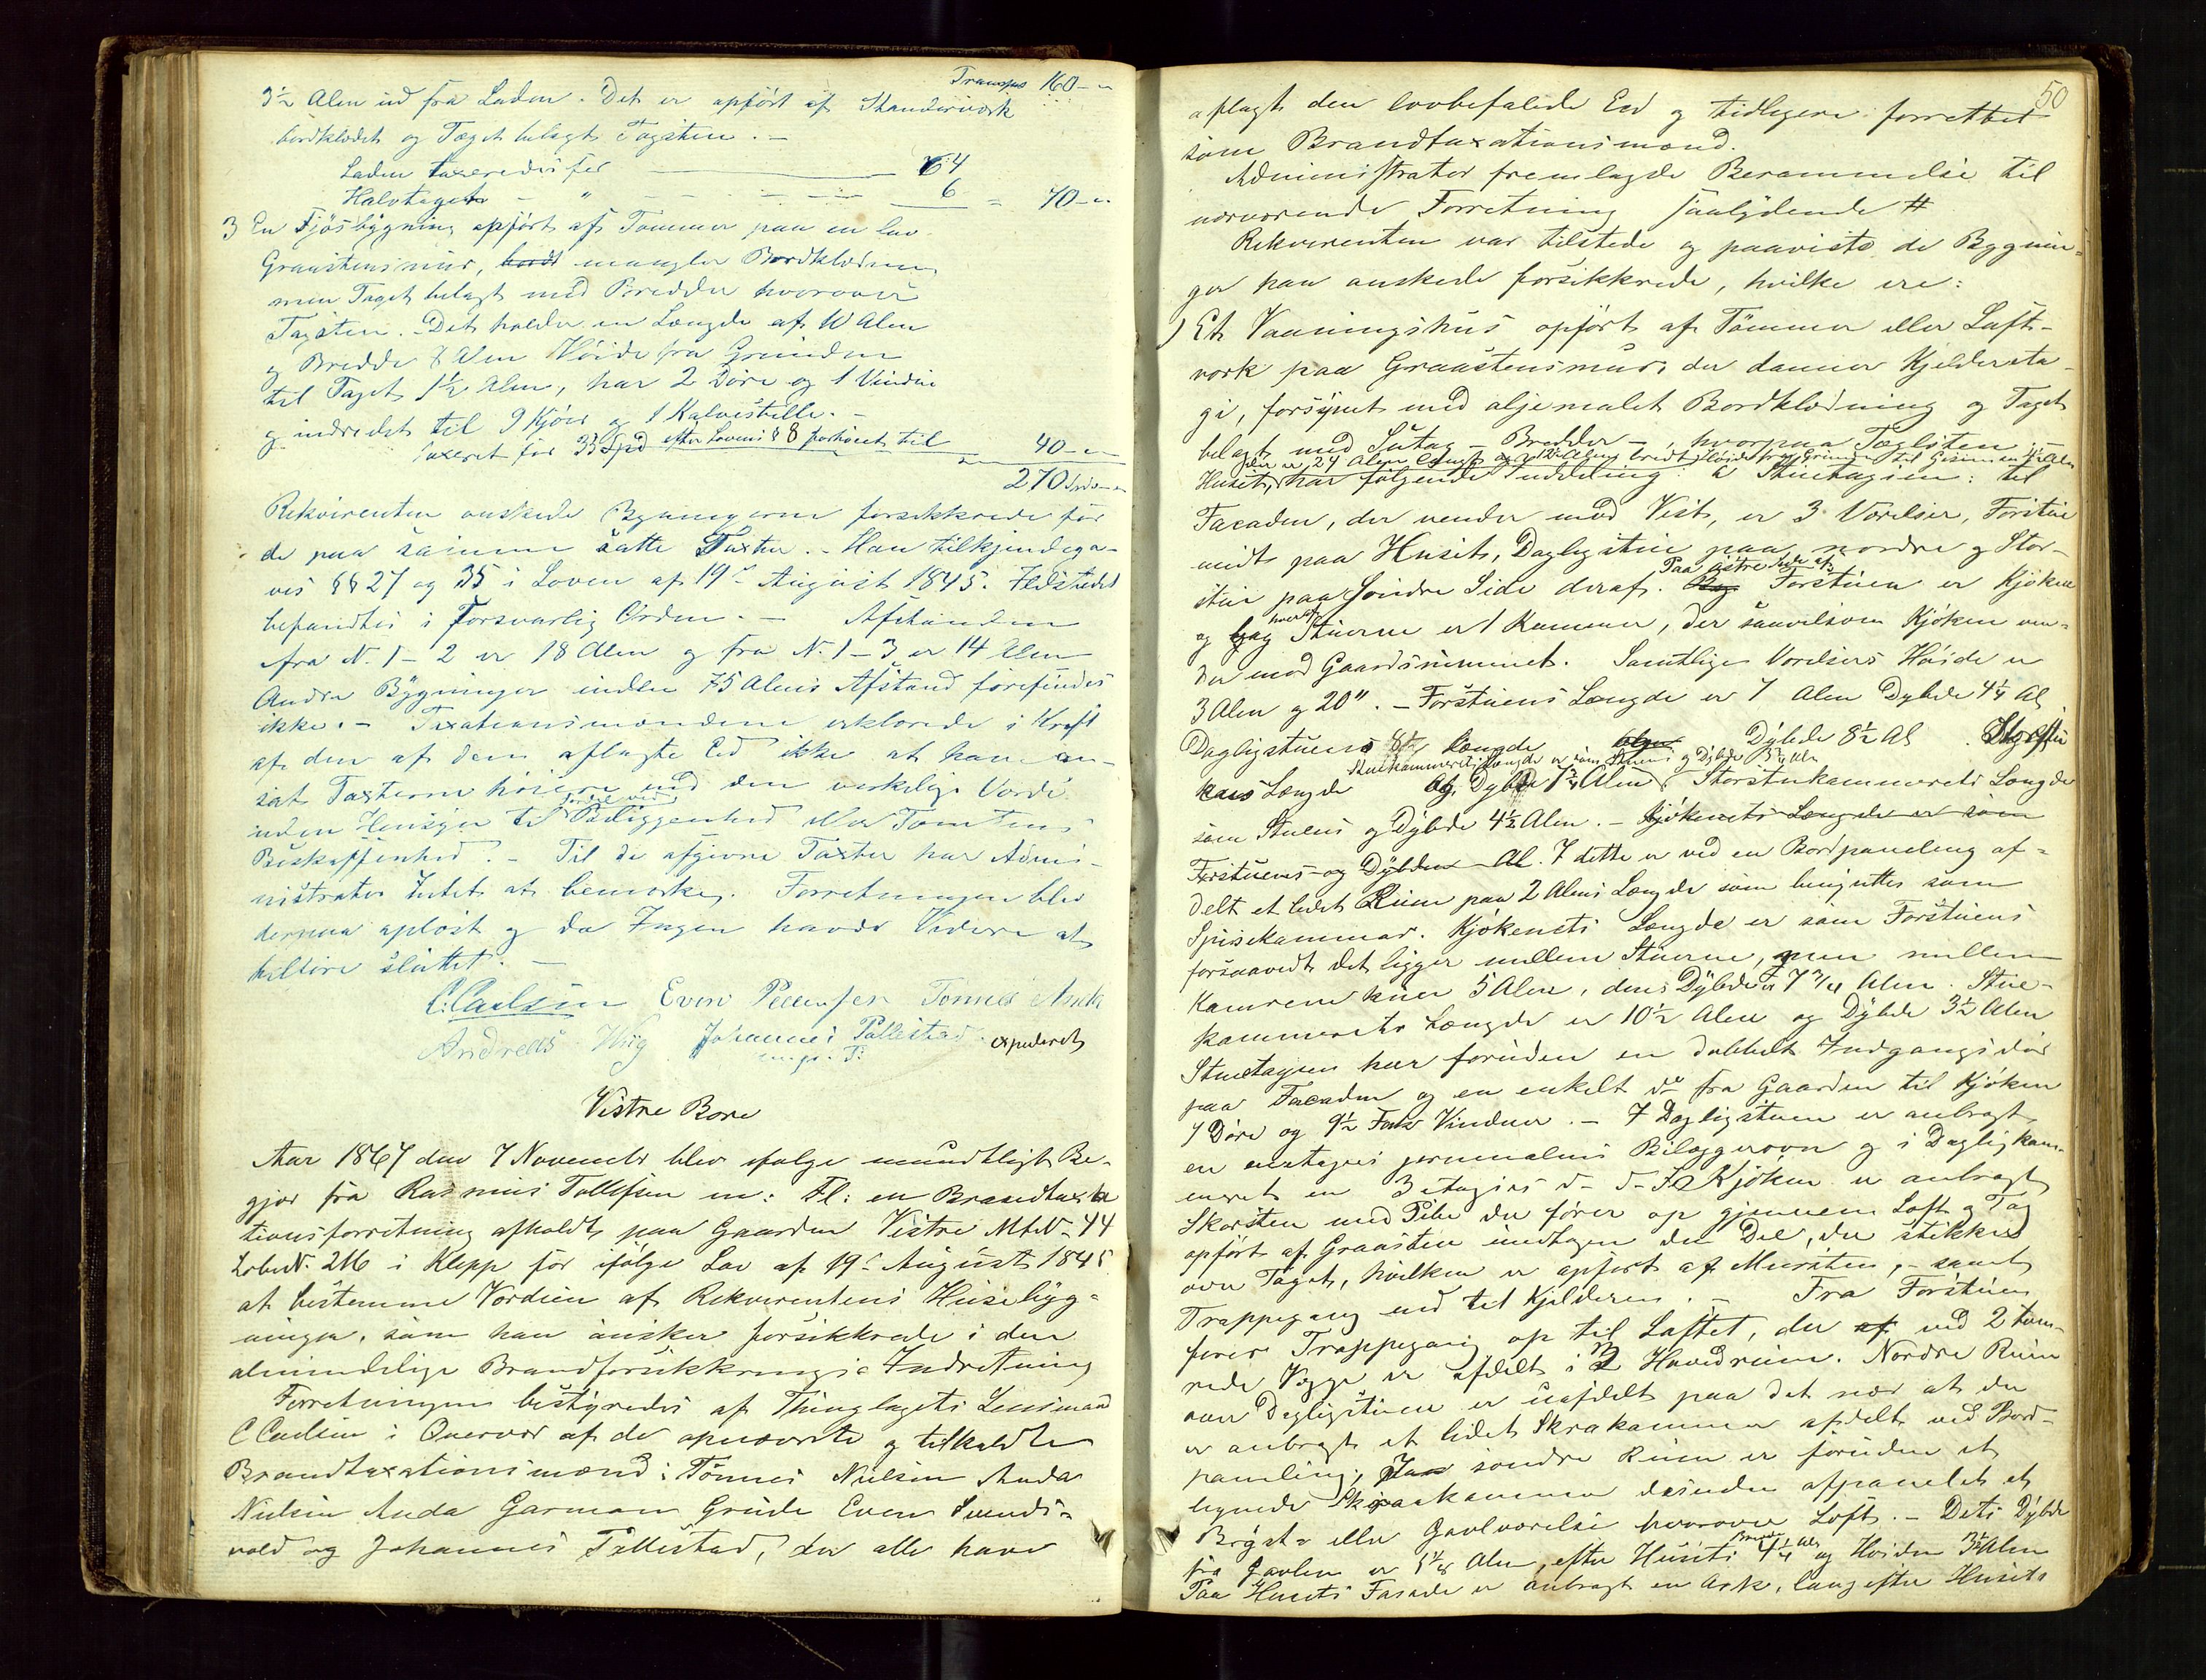 Transport 160 - "
3½ Alen ud fra Laden. Det er opført af Standerværk
bordklædet og Taget belagt Tagsten. -
Laden taxeredes for 64
Halvtaget - " - 6 = 70 - "
3 En Fjøsbygning opført af Tømmer paa en lav
Graastensmur, mangler Bordklædning
men Taget belagt med Bredder hvorover
Tagsten. Det holder en Længde af 10 Alen
og Bredde 8 Alen Høide fra Grunden
til Taget 1½ Alen, har 2 Døre og 1 Vindue
og indredet til 9 Kjøer og 1 Kalvestelle. -
Taxeret for 35 Spd efter Lovens § 8 forhøiet til 40 - "
270 Spd - "
Rekvirenten ønskede Bygningerne forsikkrede for
de paa samme satte Taxter. - Han tilkjendega-
ves §§ 27 og 35 i Loven af 19de August 1845. Ildstedet
befandtes i forsvarlig Orden. - Afstanden
fra N. 1 - 2 er 18 Alen og fra N. 1 - 3 er 14 Alen
Andre Bygninger inden 75 Alens Afstand forefindes
ikke. - Taxationsmændene erklærede i Kraft
af den af dem aflagte Ed ikke at have an-
sat Taxterne høiere end den verkelige Værdi
uden Hensyn til Fordel ved Beliggenhed eller Tomtens
Beskaffenhed. - Til de afgivne Taxter har Admi-
nistrator Intet at bemærke. Forretningen blev
derpaa oplæst og da Ingen havde Videre at
tilføre sluttet. -
C. Carlsen Even Pedersen Tønnes Anda
Andreas Wiig Johannes Tallestad expederet
m. p. P:
Vestre Bore
Aar 1867 den 7 November blev ifølge mundtligt Be-
gjær fra Rasmus Tollefsen en: Fl: en Brandtaxa
tionsforretning afholdt paa Gaarden Vestre MtN. 44
LøbeN. 216 i Klepp for ifølge Lov af 19de August 1845
at bestemme Værdien af Rekvirentens Huusebyg-
ninger, som han ønsker forsikkrede i den
almindelige Brandforsikkrings Indretning
Forretningen bestyredes af Thinglagets Lensmand
C Carlsen i Overvær af de opnævnte og tilkaldte
Brandtaxationsmænd: Tønnes Nielsen Anda
Nielsen Anda Garman Grude Even Svends-
vold og Johannes Tallestad, der alle have
50
aflagt den lovbefalede Eed og tidligere forrettet
som Brandtaxationsmænd.
Administrator fremlagde Berammelse til
nærværende Forretning saalydende #
Rekvirenten var tilstede og paaviste de Bygnin-
ger han ønskede forsikkrede, hvilke ere:
1) Et Vaaningshus opført af Tømmer eller Laft-
værk paa Graastensmur, der danner Kjeldereta-
ge, forsynet med oljemalet Bordklædning og Taget
belagt med Sutag - Bredder -, hvorpaa Teglsten. -
der er 24 Alen langt og 12 Alen bredt, Høide fra Grunden til Gesimsen Alen
Huset, har følgende Inddeling: i Stuetagien: til
Facaden, der vender mod Vest, er 3 Værelser, Forstue
midt paa Huset, Dagligstue paa nordre og Stor-
stue paa søndre Side deraf. Paa østre Side af Forstuen er Kjøken
og bag hver af Stuerne er 1 Kammer, der saavelsom Kjøken ven-
der mod Gaardsrummet. Samtlige Værelsers Høide er
3 Alen og 20". - Forstuens Længde er 7 Alen Dybde 4¼ Al
Dagligstuens Længde Dybde 8½ Al. Storstu
Stuekammerets Længde er som Stuens og Dybde 3¼ Alen
ens Længde Al. Dybde 7¾ Alen, Storstukammerets Længde
som Stuens og Dybde 4½ Alen. - Kjøkenets Længde er som
Forstuens og Dybden Al. I dette er ved en Bordpaneling af-
delt et lidet Rum paa 2 Alens Længde som benyttes som
Spisekammer. Kjøkenets Længde er som Forstuens
forsaavidt det ligger mellem Stuerne, men mellem
Kamrene kun 5 Alen, dens Dybde er 7 Alen. Stue-
kammerets Længde er 10½ Alen og Dybde 3½ Alen
Stuetagien har foruden en dobbelt Indgangsdør
paa Facaden og en enkelt do fra Gaarden til Kjøken
7 Døre og 9½ Fag Vinduer. - I Dagligstuen er anbragt
en enetages jernmalms Bilæggerovn og i Dagligkam-
meret en 3 etagies d- d- I Kjøken er anbragt
Skorsten med Pibe der fører op gjennem Loft og Tag
opført af Graasten undtagen den Del, der stikker
over Taget, hvilken er opført af Mursten, - samt
Trappegang ned til Kjelderen. - Fra Forstuen
fører Trappegang op til Loftet, der ved 2 tøm-
rede Vægge er afdelt i 3 Hovedrum. Nordre Rum
over Dagligstuen er uafdelt paa det nær at der
er anbragt et lidet Skrakammer afdelt ved Bord-
paneling, søndre Rum er foruden et
lignende Skraakammer desuden afpanelet et
Brøst- eller Gavlværelse hvorover Loft. - Dets Dybde
fra Gavlen er 5⅛ Alen, efter Husets Bredde 4¼ Alen og Høiden 3½ Alen
Paa Husets Fasade er anbragt en Ark, lang efter Husets